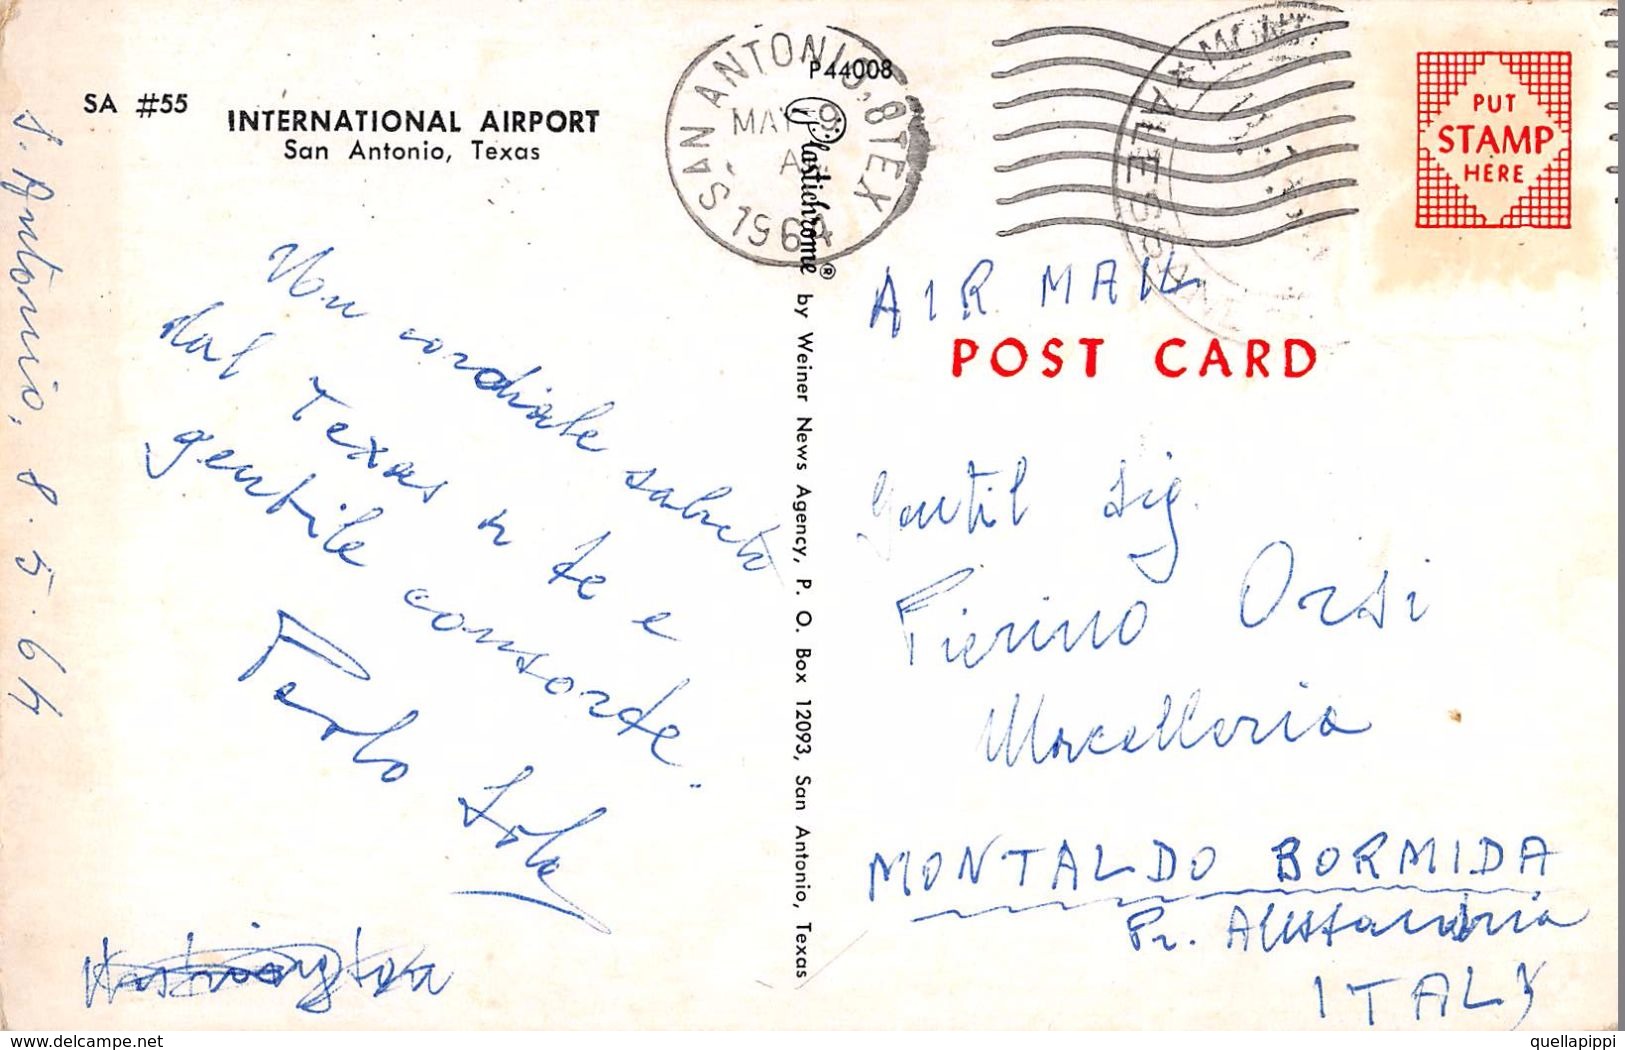 SA #55
INTERNATIONAL AIRPORT
San Antonio, Texas
S. Antonio, 8.5.64
Un cordiale saluto
dal Texas a te e
gentile consorte.
Paolo
Washington
P44008
Plastichrome® by Weiner News Agency, P. O. Box 12093, San Antonio, Texas
SAN ANTONIO, 8 TEX
MAY 9
A
1964
PUT
STAMP
HERE
AIR MAIL
POST CARD
Gentil Sig.
Pierino Orsi
Macelleria
MONTALDO BORMIDA
Pr. Alessandria
ITALY
delcampe.net
quellapippi